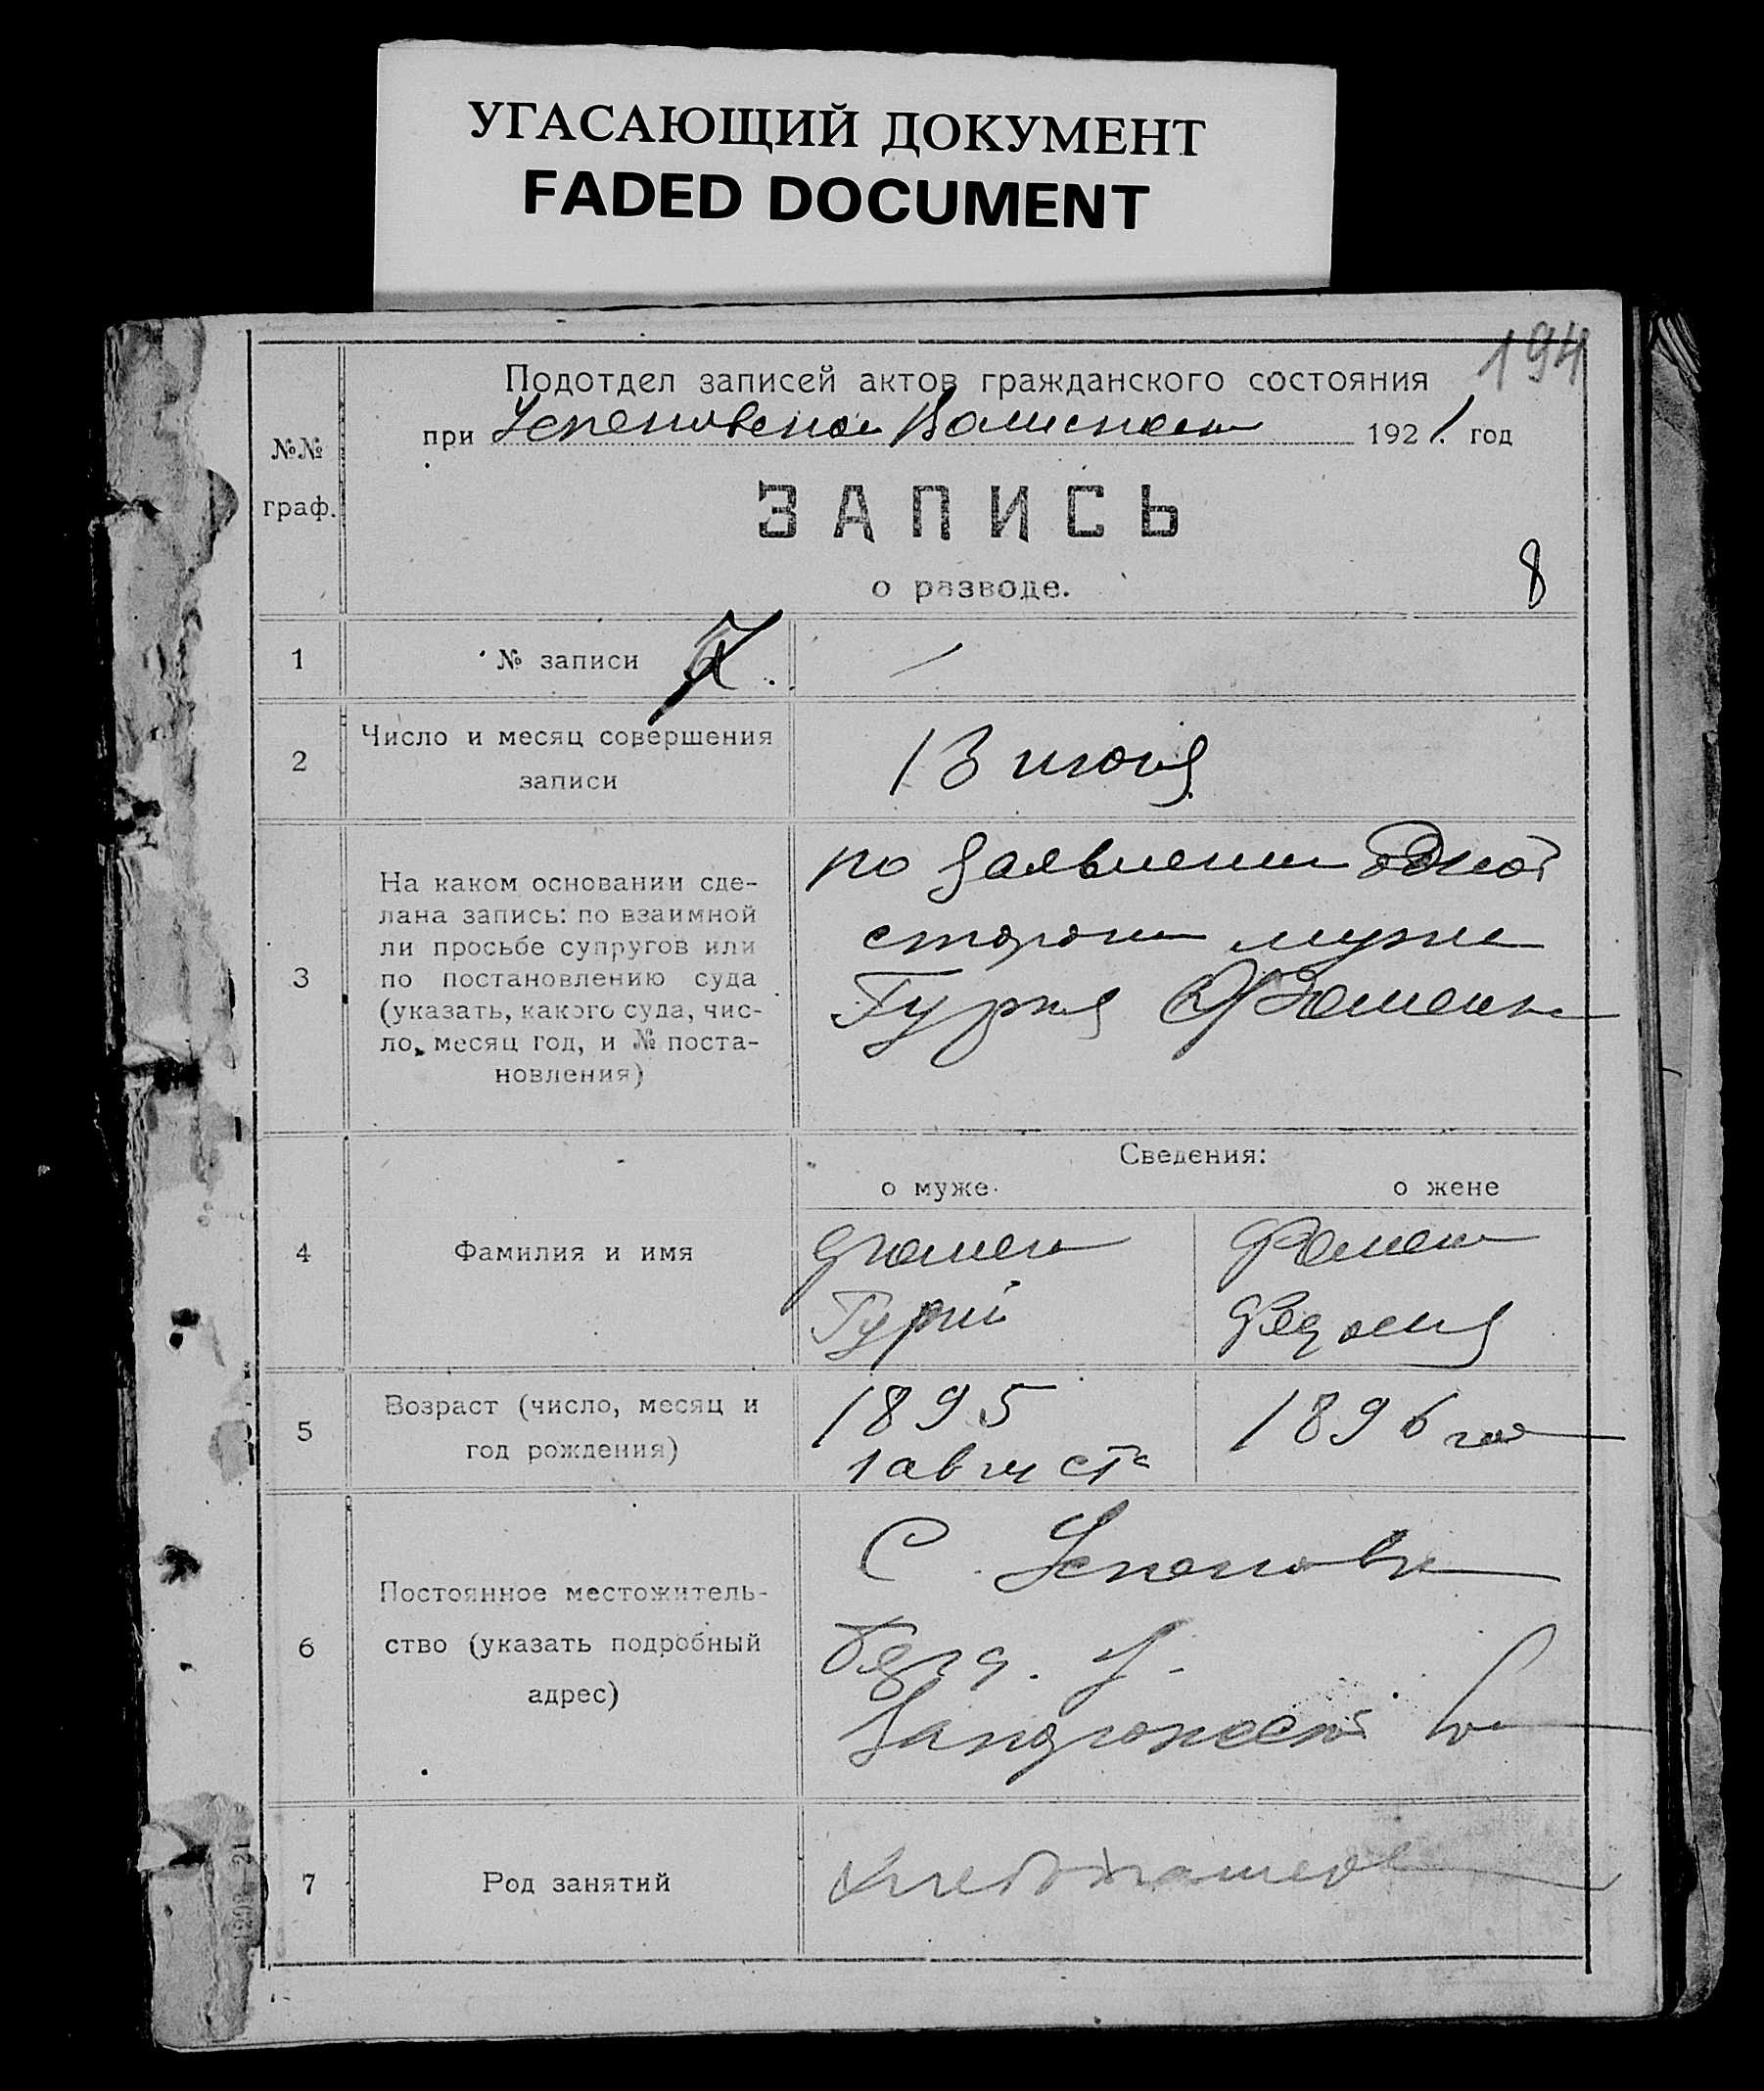 УГАСАЮЩИЙ ДОКУМЕНТ
FADED DOCUMENT
194
Подотдел записей актов гражданского состояния
при Успеновском 1921. год
№№
граф.
ЗАПИСЬ
о разводе.
8
1
№ записи
2
Число и месяц совершения
записи
13 июня
3
На каком основании сде-
лана запись: по взаимной
ли просьбе супругов или
по постановлению суда
(указать, какого суда, чис-
ло, месяц год, и № поста-
новления)
по заявлении одной
стороны мужа
Гурия
Сведения:
о муже.
о жене
4
Фамилия и имя
Гурий
5
Возраст (число, месяц и
год рождения)
1895
1 августа
1896 года
6
Постоянное местожитель-
ство (указать подробный
адрес)
С. Успеновка
Бердя. У.
Запорожской
7
Род занятий
Хлебопашество